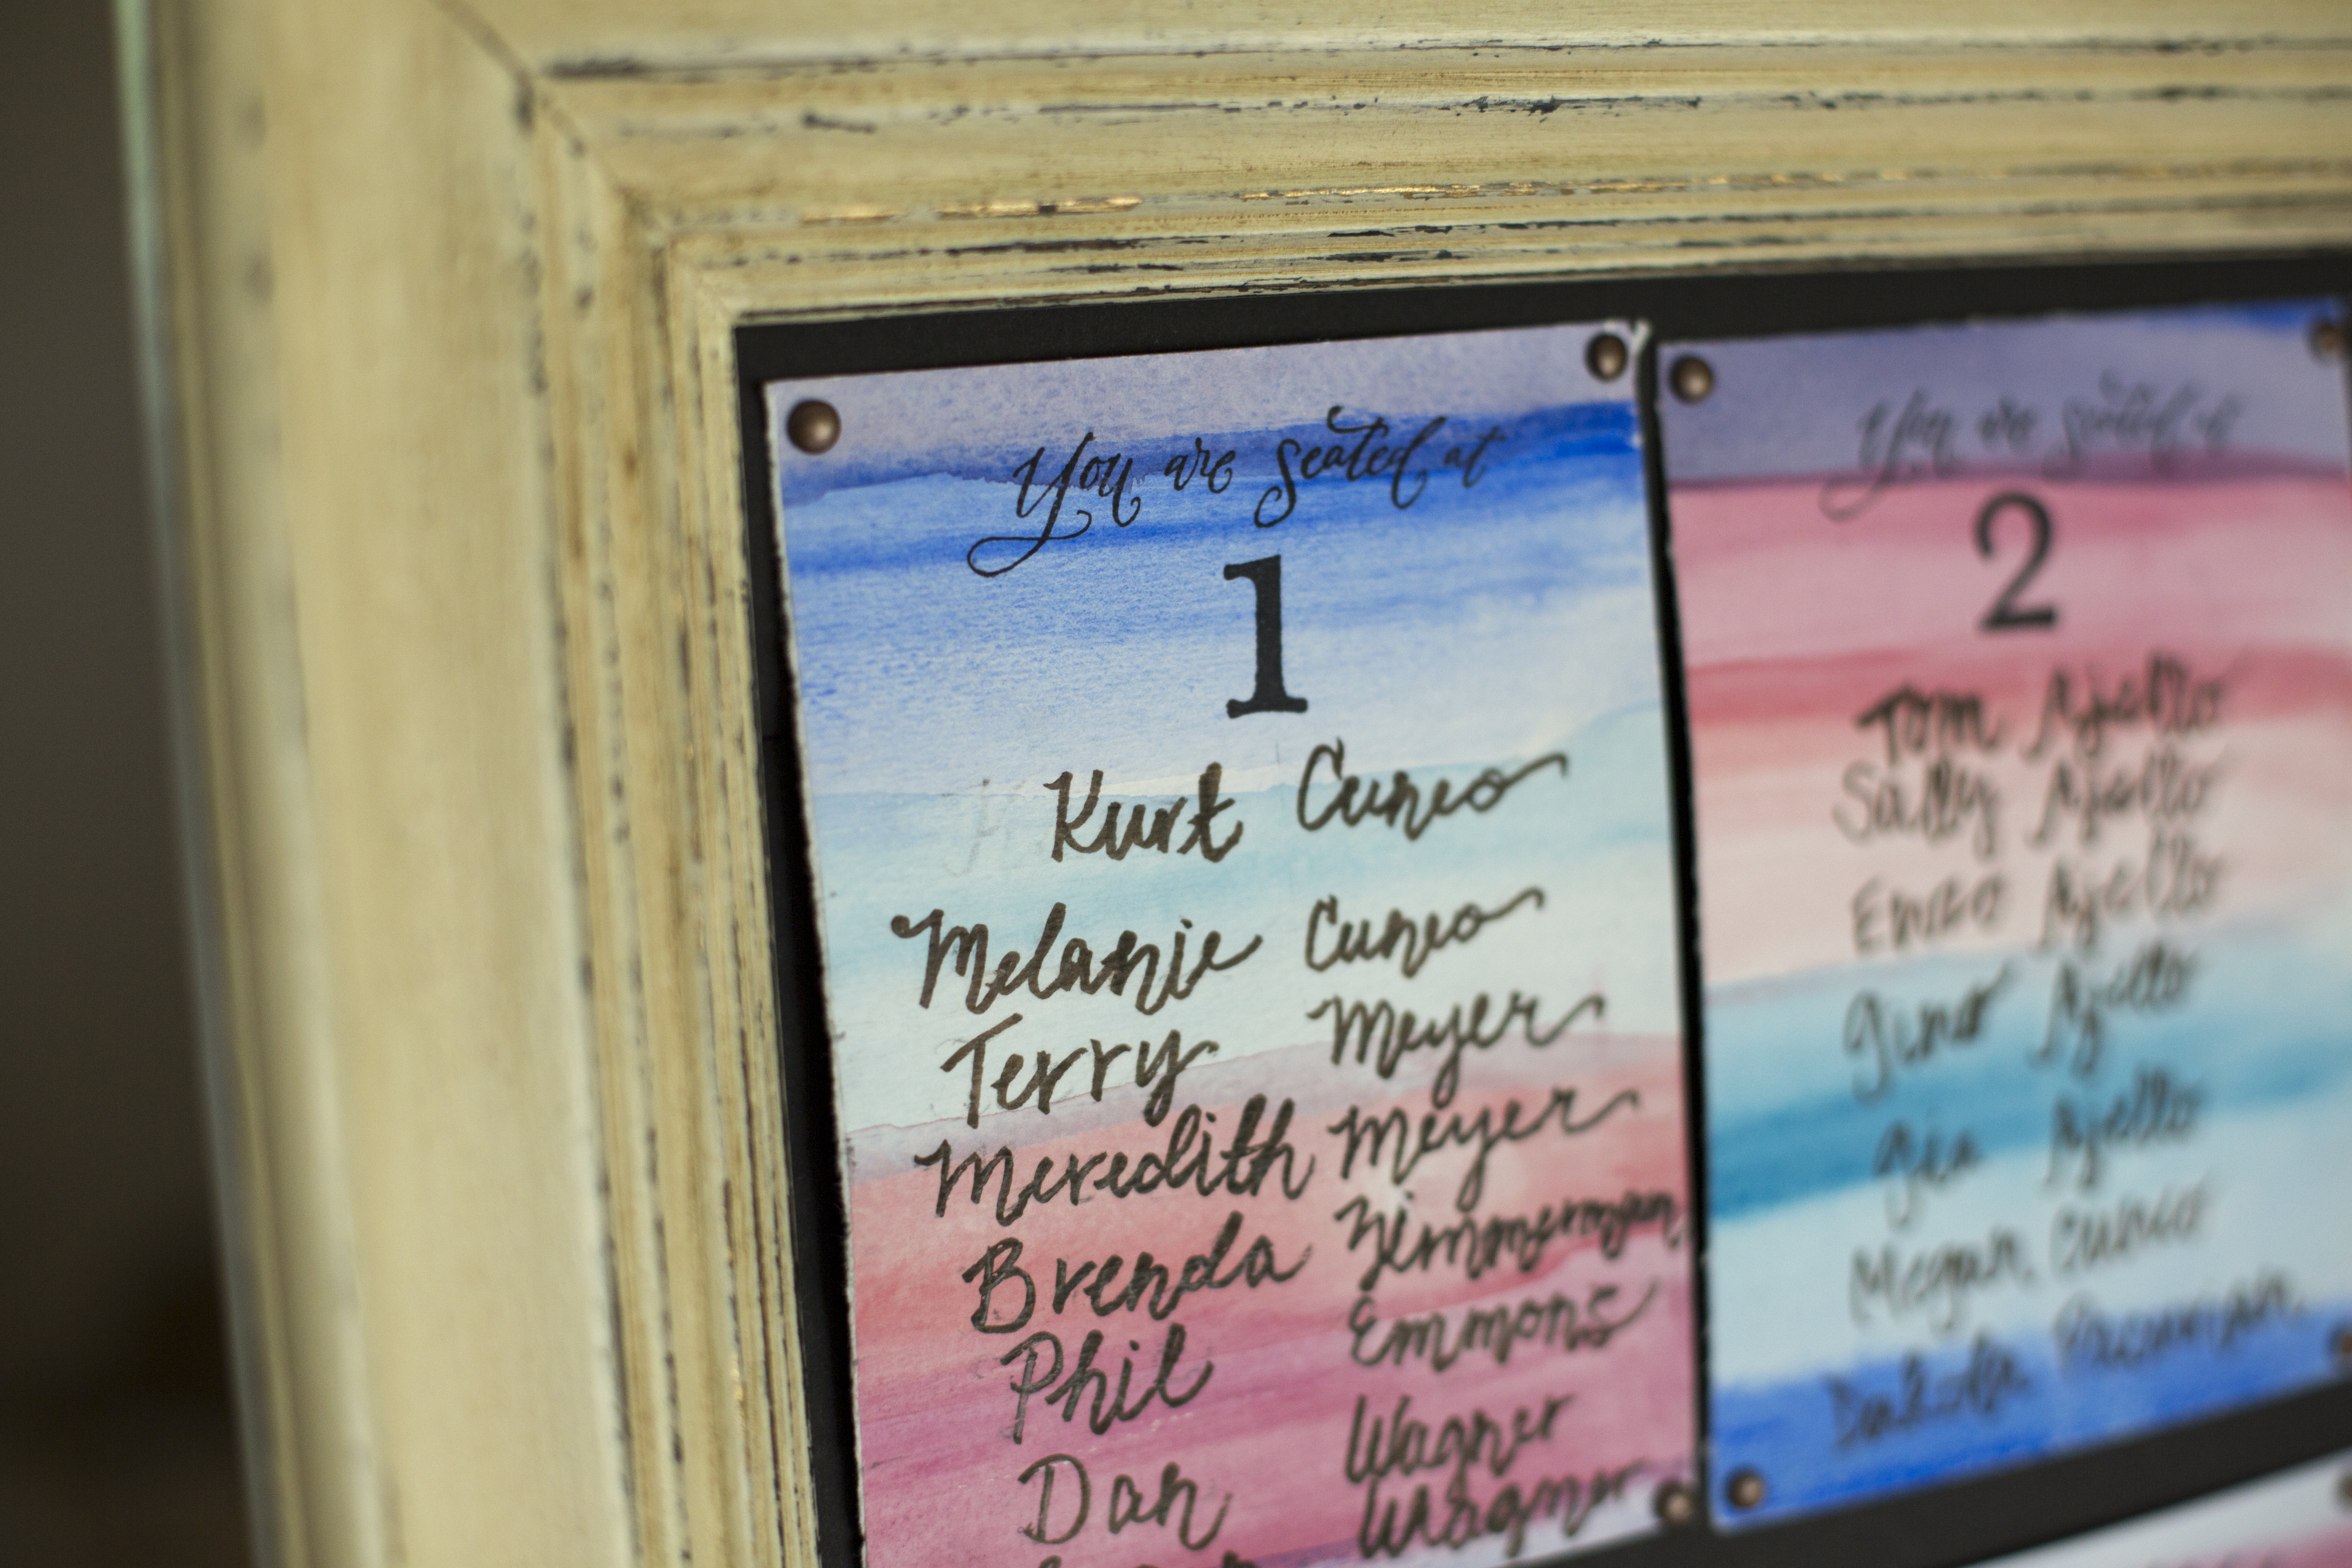 You are seated at
1
Kurt Cuneo
Melanie Cuneo
Terry Meyer
Meredith Meyer
Brenda Zimmerman
Phil Emmons
Dan Wagner
Wagner
You are seated at
2
Tom Ajello
Sally Ajello
Enzo Ajello
Gino Ajello
Gia Ajello
Megan Cuneo
Dakota